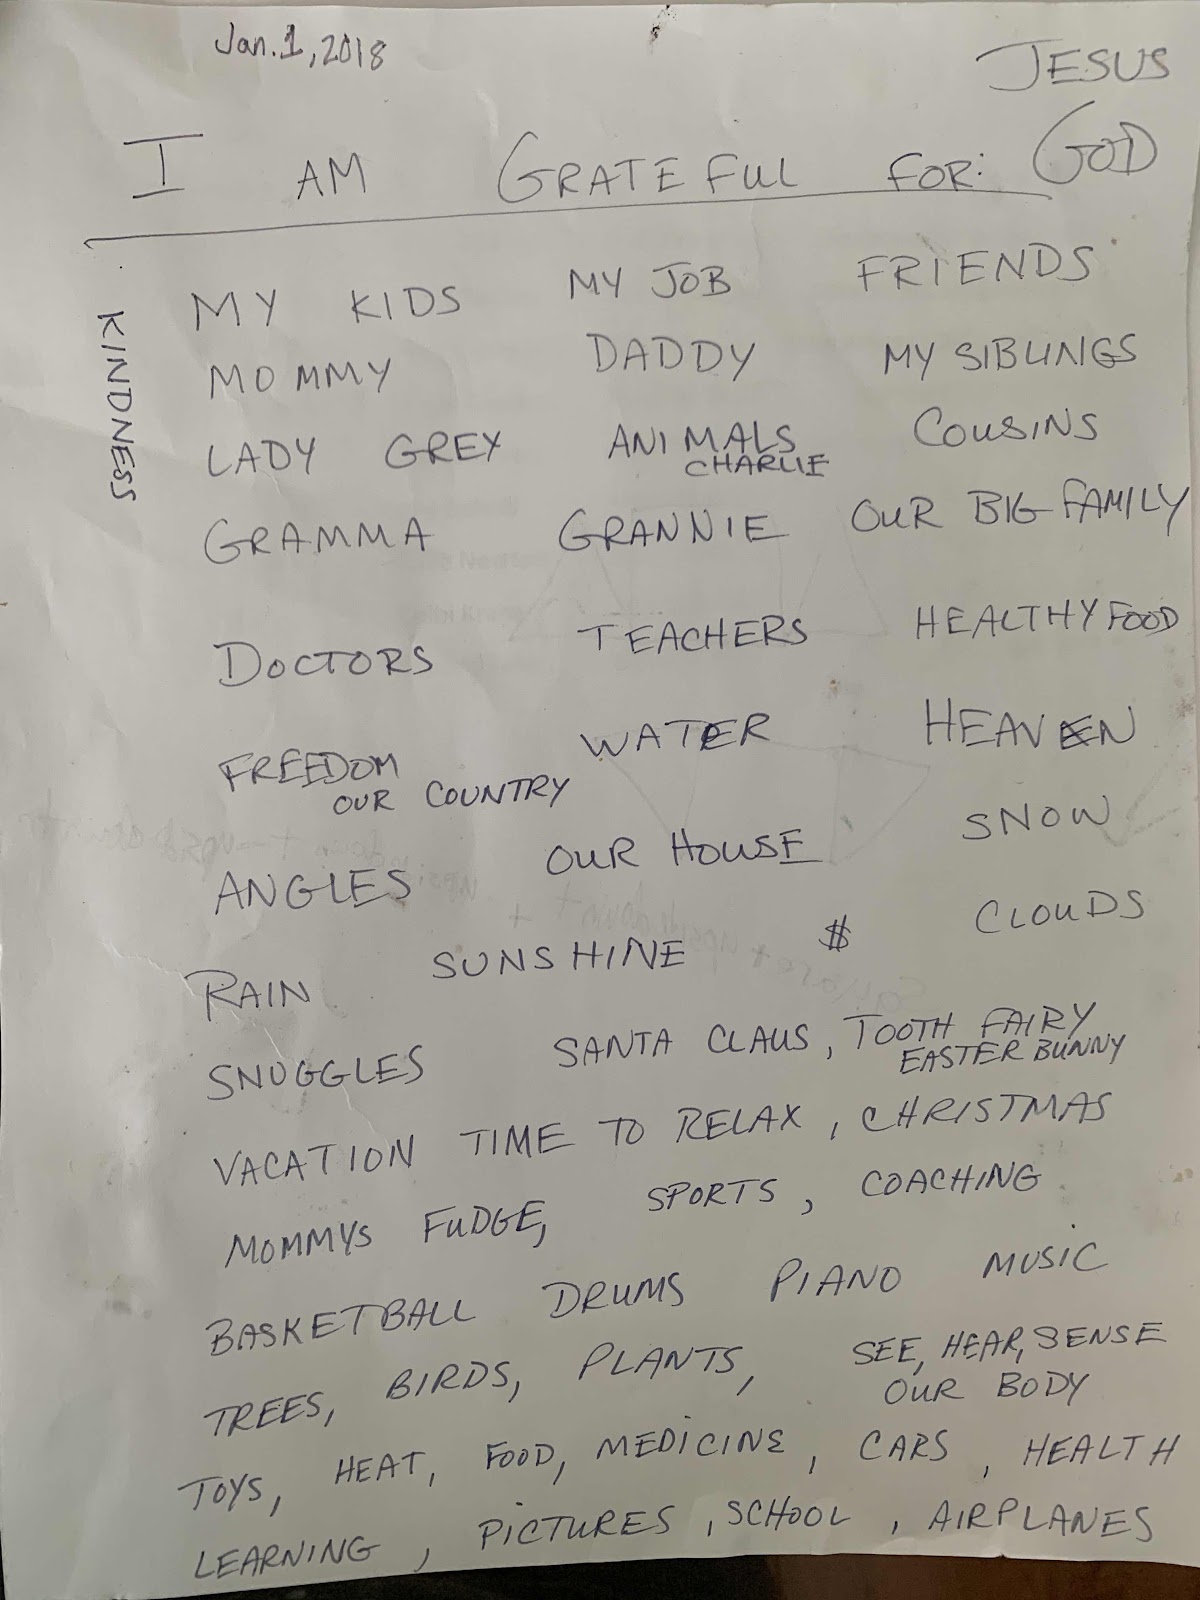 Jan. 1, 2018
JESUS
I AM GRATEFUL FOR: GOD
KINDNESS
MY KIDS MY JOB FRIENDS
MOMMY DADDY MY SIBLINGS
LADY GREY ANIMALS COUSINS
CHARLIE
GRAMMA GRANNIE OUR BIG FAMILY
DOCTORS TEACHERS HEALTHY FOOD
FREEDOM WATER HEAVEN
OUR COUNTRY
ANGLES OUR HOUSE SNOW
RAIN SUNSHINE $ CLOUDS
SNUGGLES SANTA CLAUS, TOOTH FAIRY
EASTER BUNNY
VACATION TIME TO RELAX, CHRISTMAS
MOMMYS FUDGE, SPORTS, COACHING
BASKETBALL DRUMS PIANO MUSIC
TREES, BIRDS, PLANTS, SEE, HEAR, SENSE
OUR BODY
TOYS, HEAT, FOOD, MEDICINE, CARS, HEALTH
LEARNING, PICTURES, SCHOOL, AIRPLANES